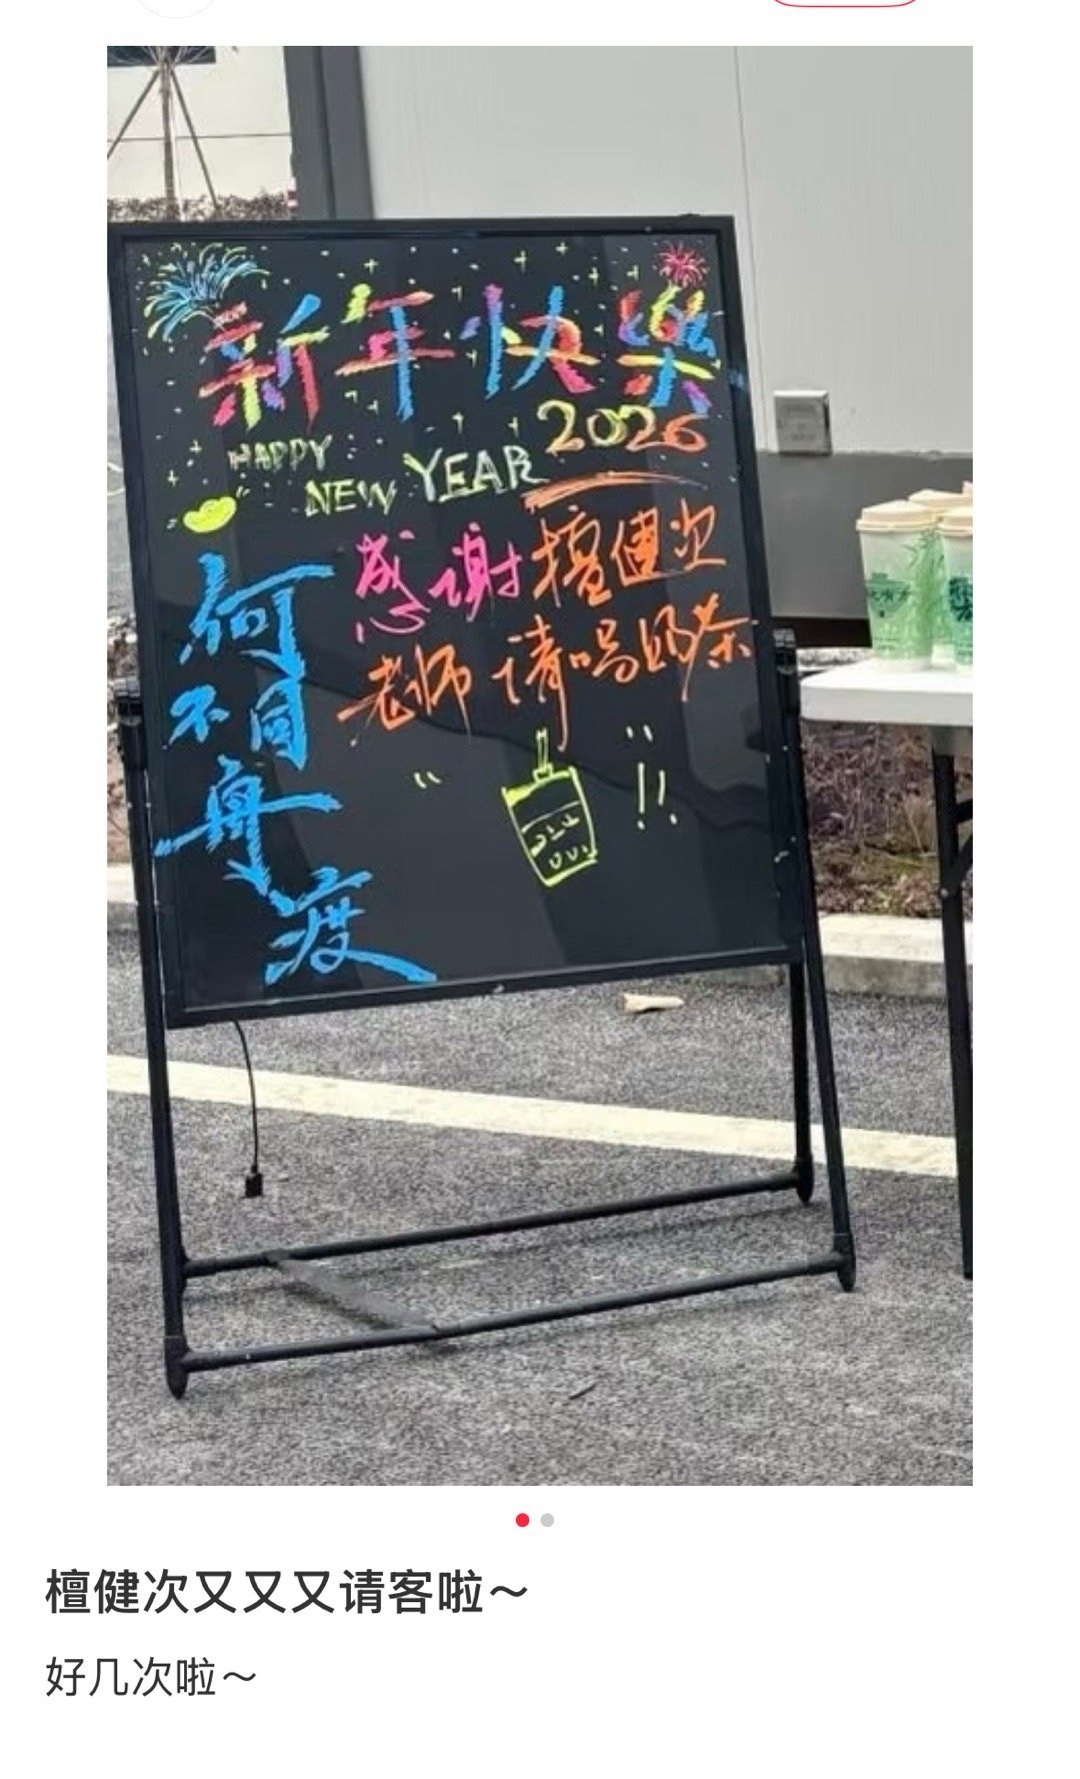 新年快樂
HAPPY
NEW YEAR 2026
感谢檀健次
老师请喝奶茶
!!
何
不
同
舟
渡
檀健次又又又请客啦～
好几次啦～